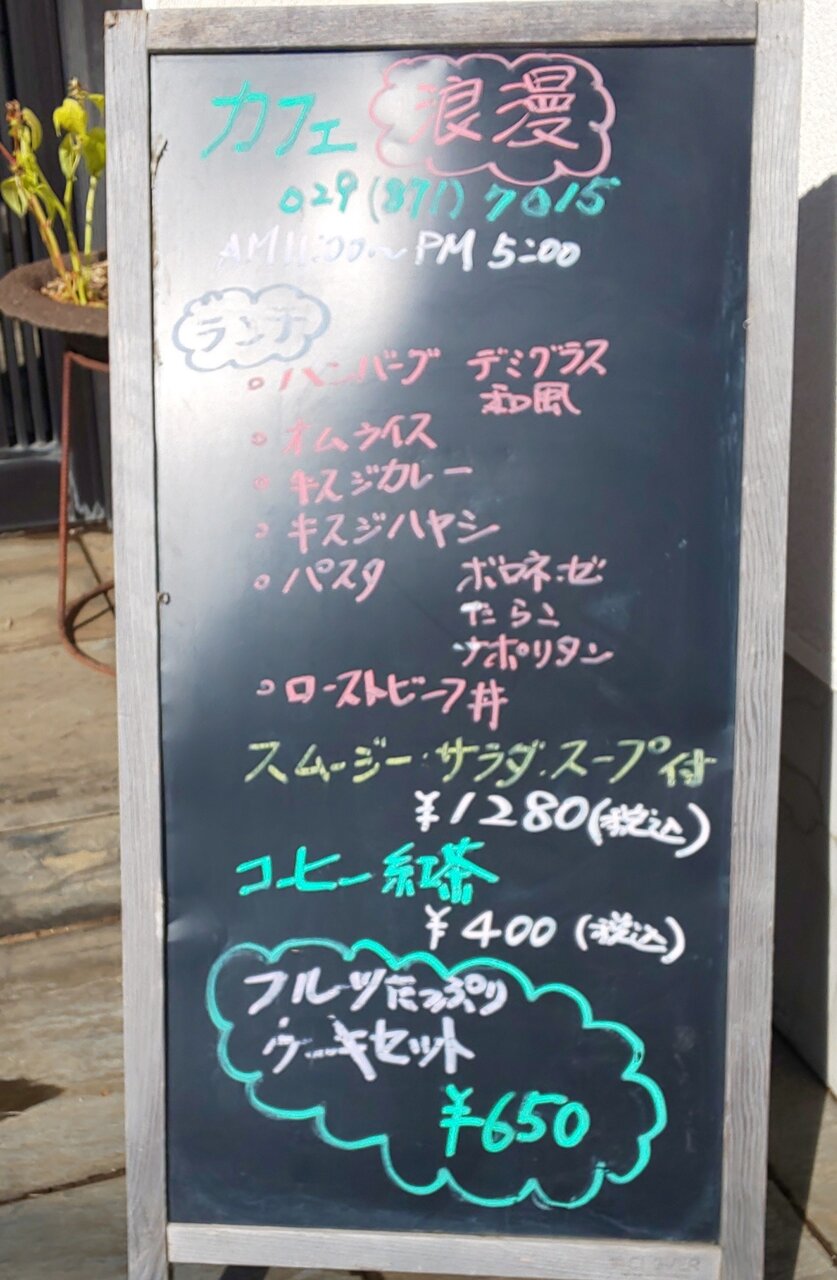 カフェ 浪漫
029(871)7015
AM11:00~PM 5:00
ランチ
○ハンバーグ デミグラス
和風
○オムライス
○キスジカレー
○キスジハヤシ
○パスタ ボロネーゼ
たらこ
ナポリタン
○ローストビーフ丼
スムージー・サラダ・スープ付
¥1280(税込)
コーヒー紅茶
¥400(税込)
フルーツたっぷり
ケーキセット
¥650